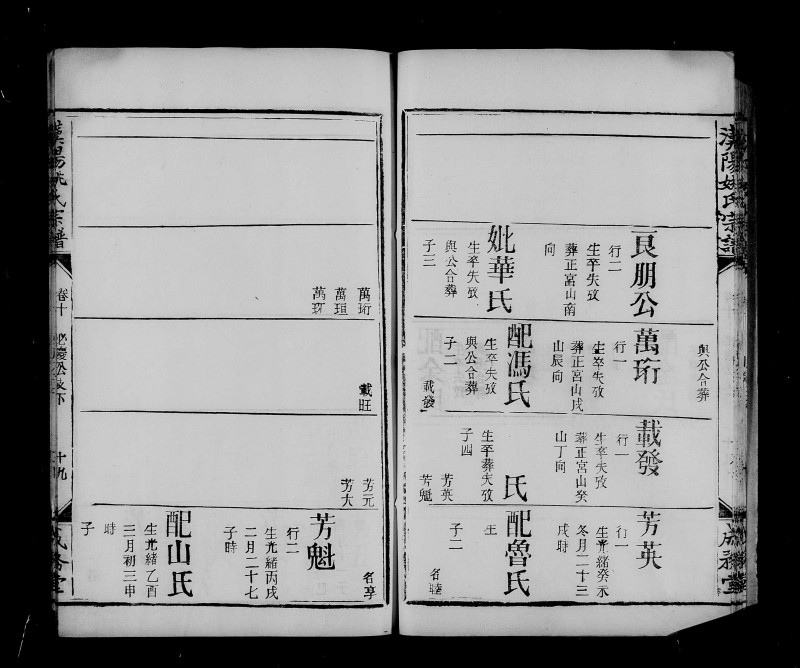 漢陽姚氏宗譜
成務堂
良朋公
行二
生卒失攷
葬正宮山南
向
妣華氏
生卒失攷
與公合葬
子三
與公合葬
萬珩
行一
生卒失攷
葬正宮山戌
山辰向
配馮氏
生卒失攷
與公合葬
子二
載發
載發
行一
生卒失攷
葬正宮山癸
山丁向
氏
生卒葬失攷
子四
芳英
芳魁
芳英
行一
生光緒癸未
冬月二十三
戌時
配魯氏
生
子二
名睦
萬珩
萬垣
萬玡
載旺
芳元
芳大
名享
芳魁
行二
生光緒丙戌
二月二十七
子時
配山氏
生光緒乙酉
三月初三申
時
子
漢陽姚氏宗譜
卷十
十九
成務堂